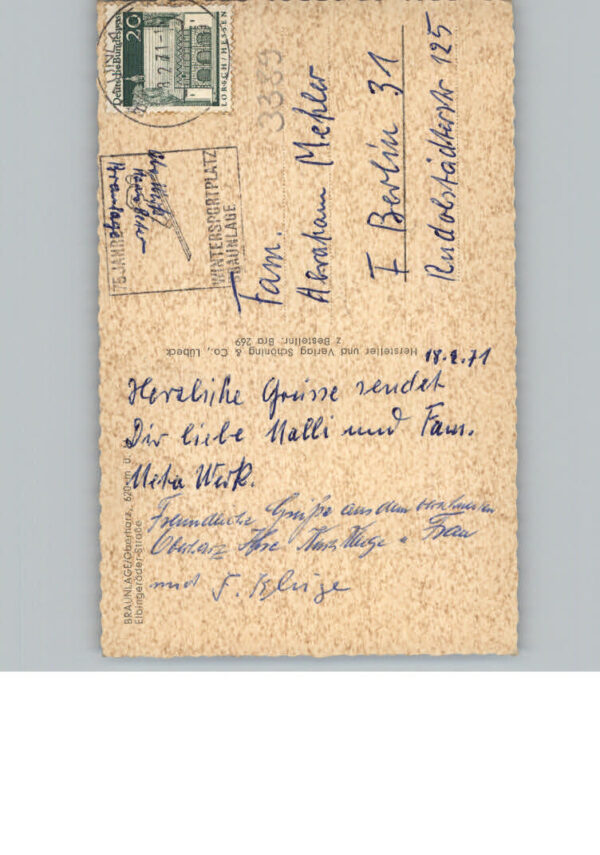 Deutsche Bundespost
20
LORSCH / HESSEN
3389
75 JAHRE
WINTERSPORTPLATZ
BRAUNLAGE
Braunlage
Fam.
Abraham Meßler
1 Berlin 31
Rudolstädterstr 125
Hersteller und Verlag Schöning & Co., Lübeck
z Bestellnr. Bra 269
18.2.71
Herzliche Grüsse sendet
Dir liebe Malli und Fam.
Meta Werk.
Freundliche Grüße aus dem verschneiten
Oberharz Ihre Kluge u Frau
und F. Kluge
BRAUNLAGE/Oberharz, 620 m ü.
Elbingeröder-Straße